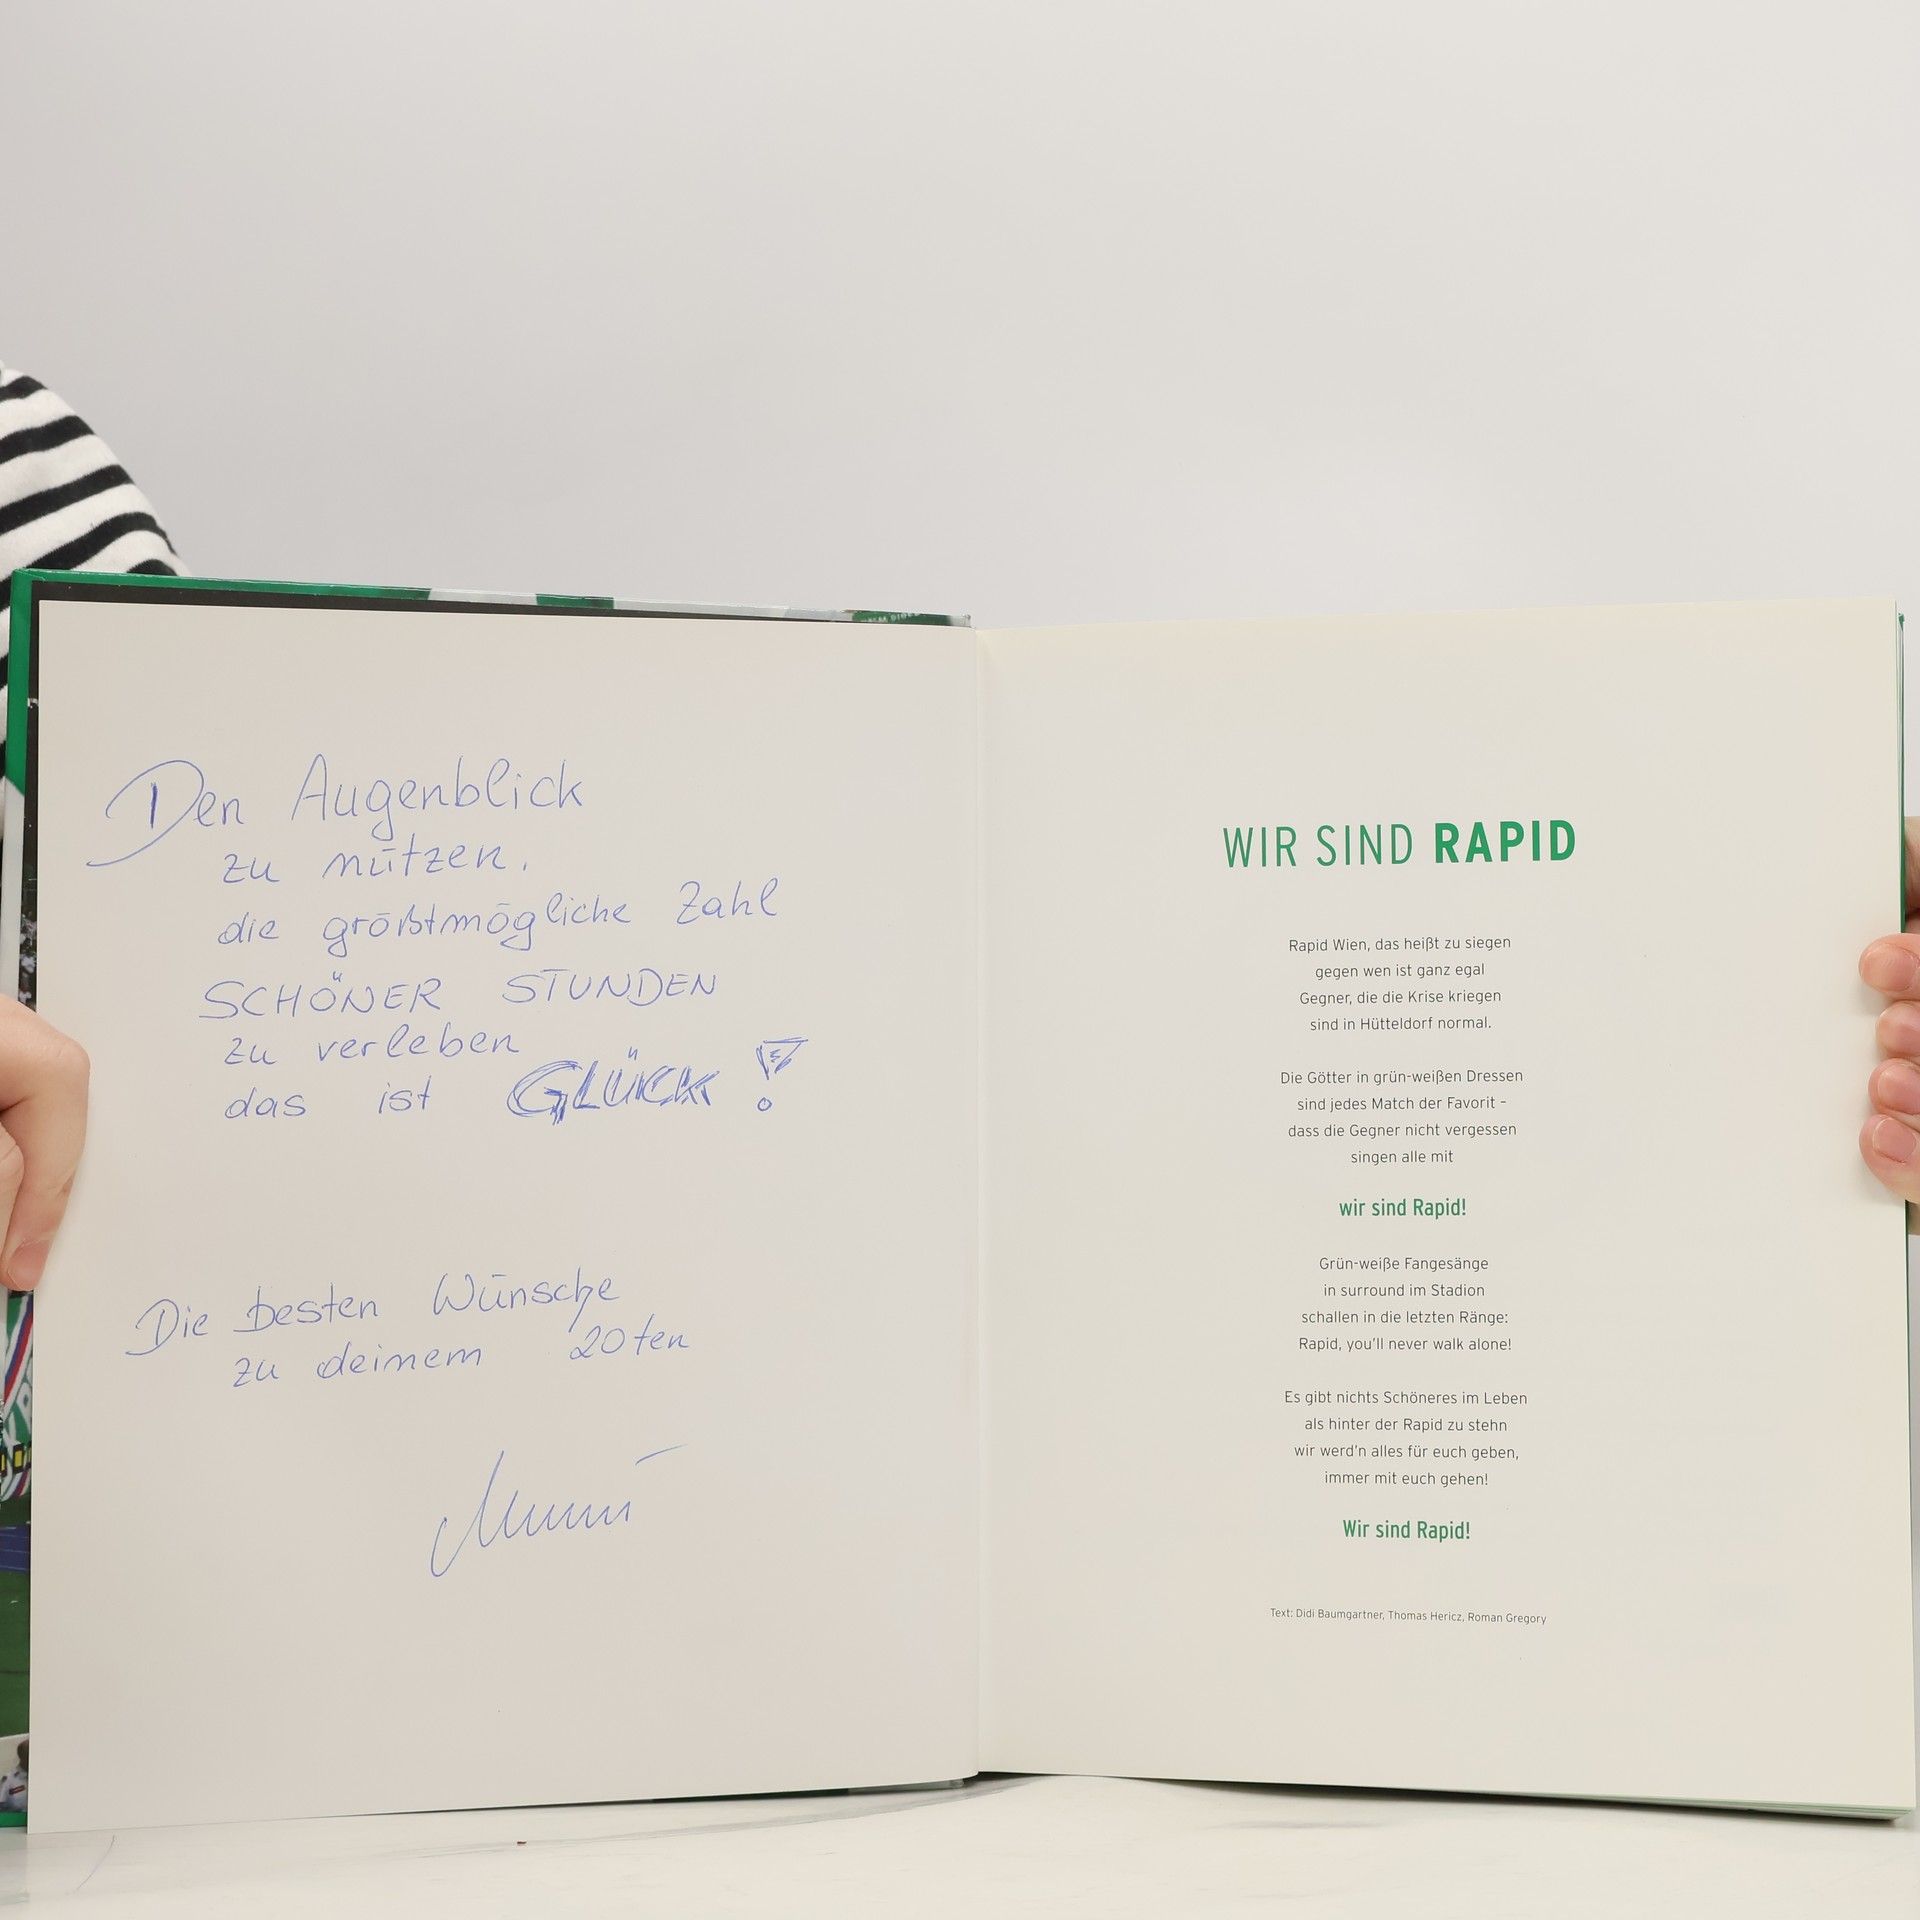 Den Augenblick
zu nützen,
die größtmögliche Zahl
SCHÖNER STUNDEN
zu verleben
das ist GLÜCK!
Die besten Wünsche
zu deinem 20ten
WIR SIND RAPID
Rapid Wien, das heißt zu siegen
gegen wen ist ganz egal
Gegner, die die Krise kriegen
sind in Hütteldorf normal.
Die Götter in grün-weißen Dressen
sind jedes Match der Favorit –
dass die Gegner nicht vergessen
singen alle mit
wir sind Rapid!
Grün-weiße Fangesänge
in surround im Stadion
schallen in die letzten Ränge:
Rapid, you'll never walk alone!
Es gibt nichts Schöneres im Leben
als hinter der Rapid zu stehn
wir werd'n alles für euch geben,
immer mit euch gehen!
Wir sind Rapid!
Text: Didi Baumgartner, Thomas Hericz, Roman Gregory